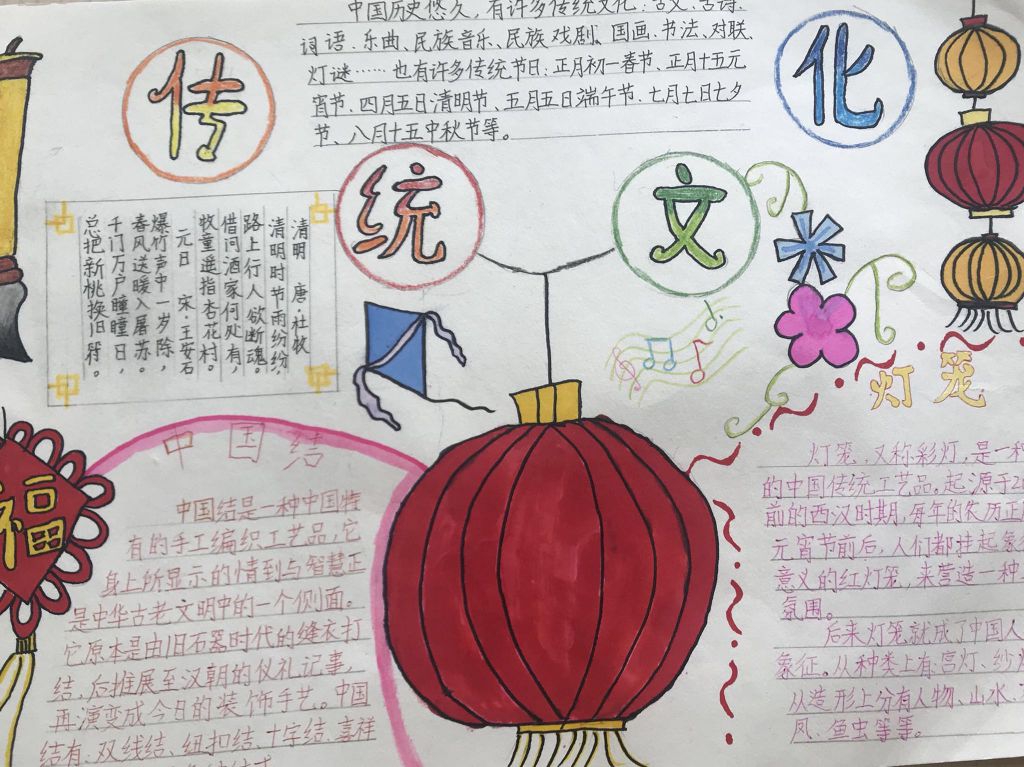 传统文化
中国历史悠久，有许多传统文化：古文、古诗、
词语、乐曲、民族音乐、民族戏剧、国画、书法、对联、
灯谜……也有许多传统节日：正月初一春节、正月十五元
宵节、四月五日清明节、五月五日端午节、七月七日七夕
节、八月十五中秋节等。
清明 唐·杜牧
清明时节雨纷纷，
路上行人欲断魂。
借问酒家何处有，
牧童遥指杏花村。
元日 宋·王安石
爆竹声中一岁除，
春风送暖入屠苏。
千门万户瞳瞳日，
总把新桃换旧符。
福
中国结
中国结是一种中国特
有的手工编织工艺品，它
身上所显示的情到与智慧正
是中华古老文明中的一个侧面。
它原本是由旧石器时代的缝衣打
结，后推展至汉朝的仪礼记事，
再演变成今日的装饰手艺。中国
结有、双线结、纽扣结、十字结、吉祥
灯笼
灯笼，又称彩灯，是一种
的中国传统工艺品。起源于2
前的西汉时期，每年的农历正
元宵节前后，人们都挂起象
意义的红灯笼，来营造一种
氛围。
后来灯笼就成了中国人
象征。从种类上有：宫灯、纱灯
从造形上分有人物、山水、
凤、鱼虫等等。